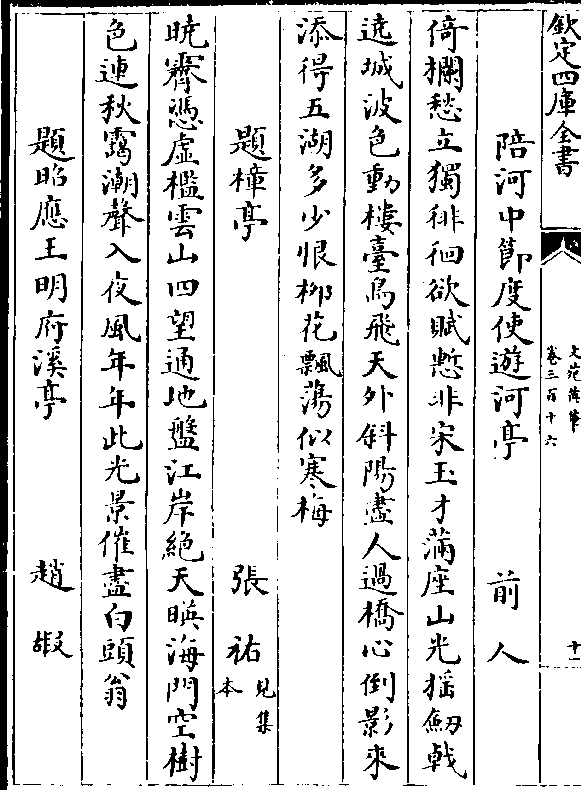 欽定四庫全書
文苑英華
卷三百十六
十一
陪河中節度使遊河亭 前人
倚攔愁立獨徘徊欲賦慙非宋玉才滿座山光摇劒戟
遶城波色動樓臺鳥飛天外斜陽盡人過橋心倒影來
添得五湖多少恨柳花飄蕩似寒梅
題樟亭 張祐見集本
曉霽憑虚檻雲山四望通地盤江岸絶天暎海門空樹
色連秋靄潮聲入夜風年年此光景催盡白頭翁
題昭應王明府溪亭 趙嘏